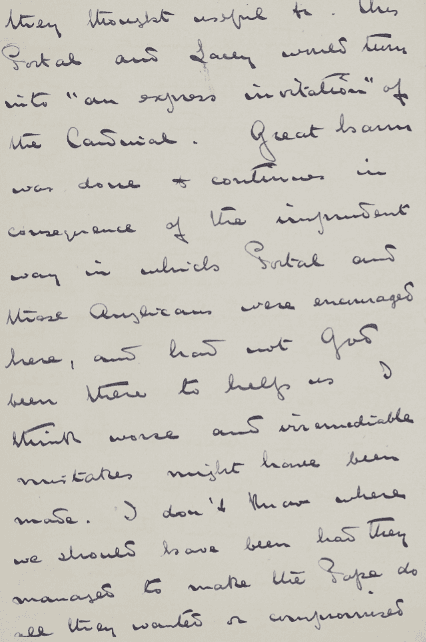 they thought useful &c. This
Portal and Lacey would turn
into "an express invitation" of
the Cardinal. Great harm
was done & continues in
consequence of the imprudent
way in which Portal and
those Anglicans were encouraged
here, and had not God
been there to help us I
think worse and irremediable
mistakes might have been
made. I don't know where
we should have been had they
managed to make the Pope do
all they wanted or compromised